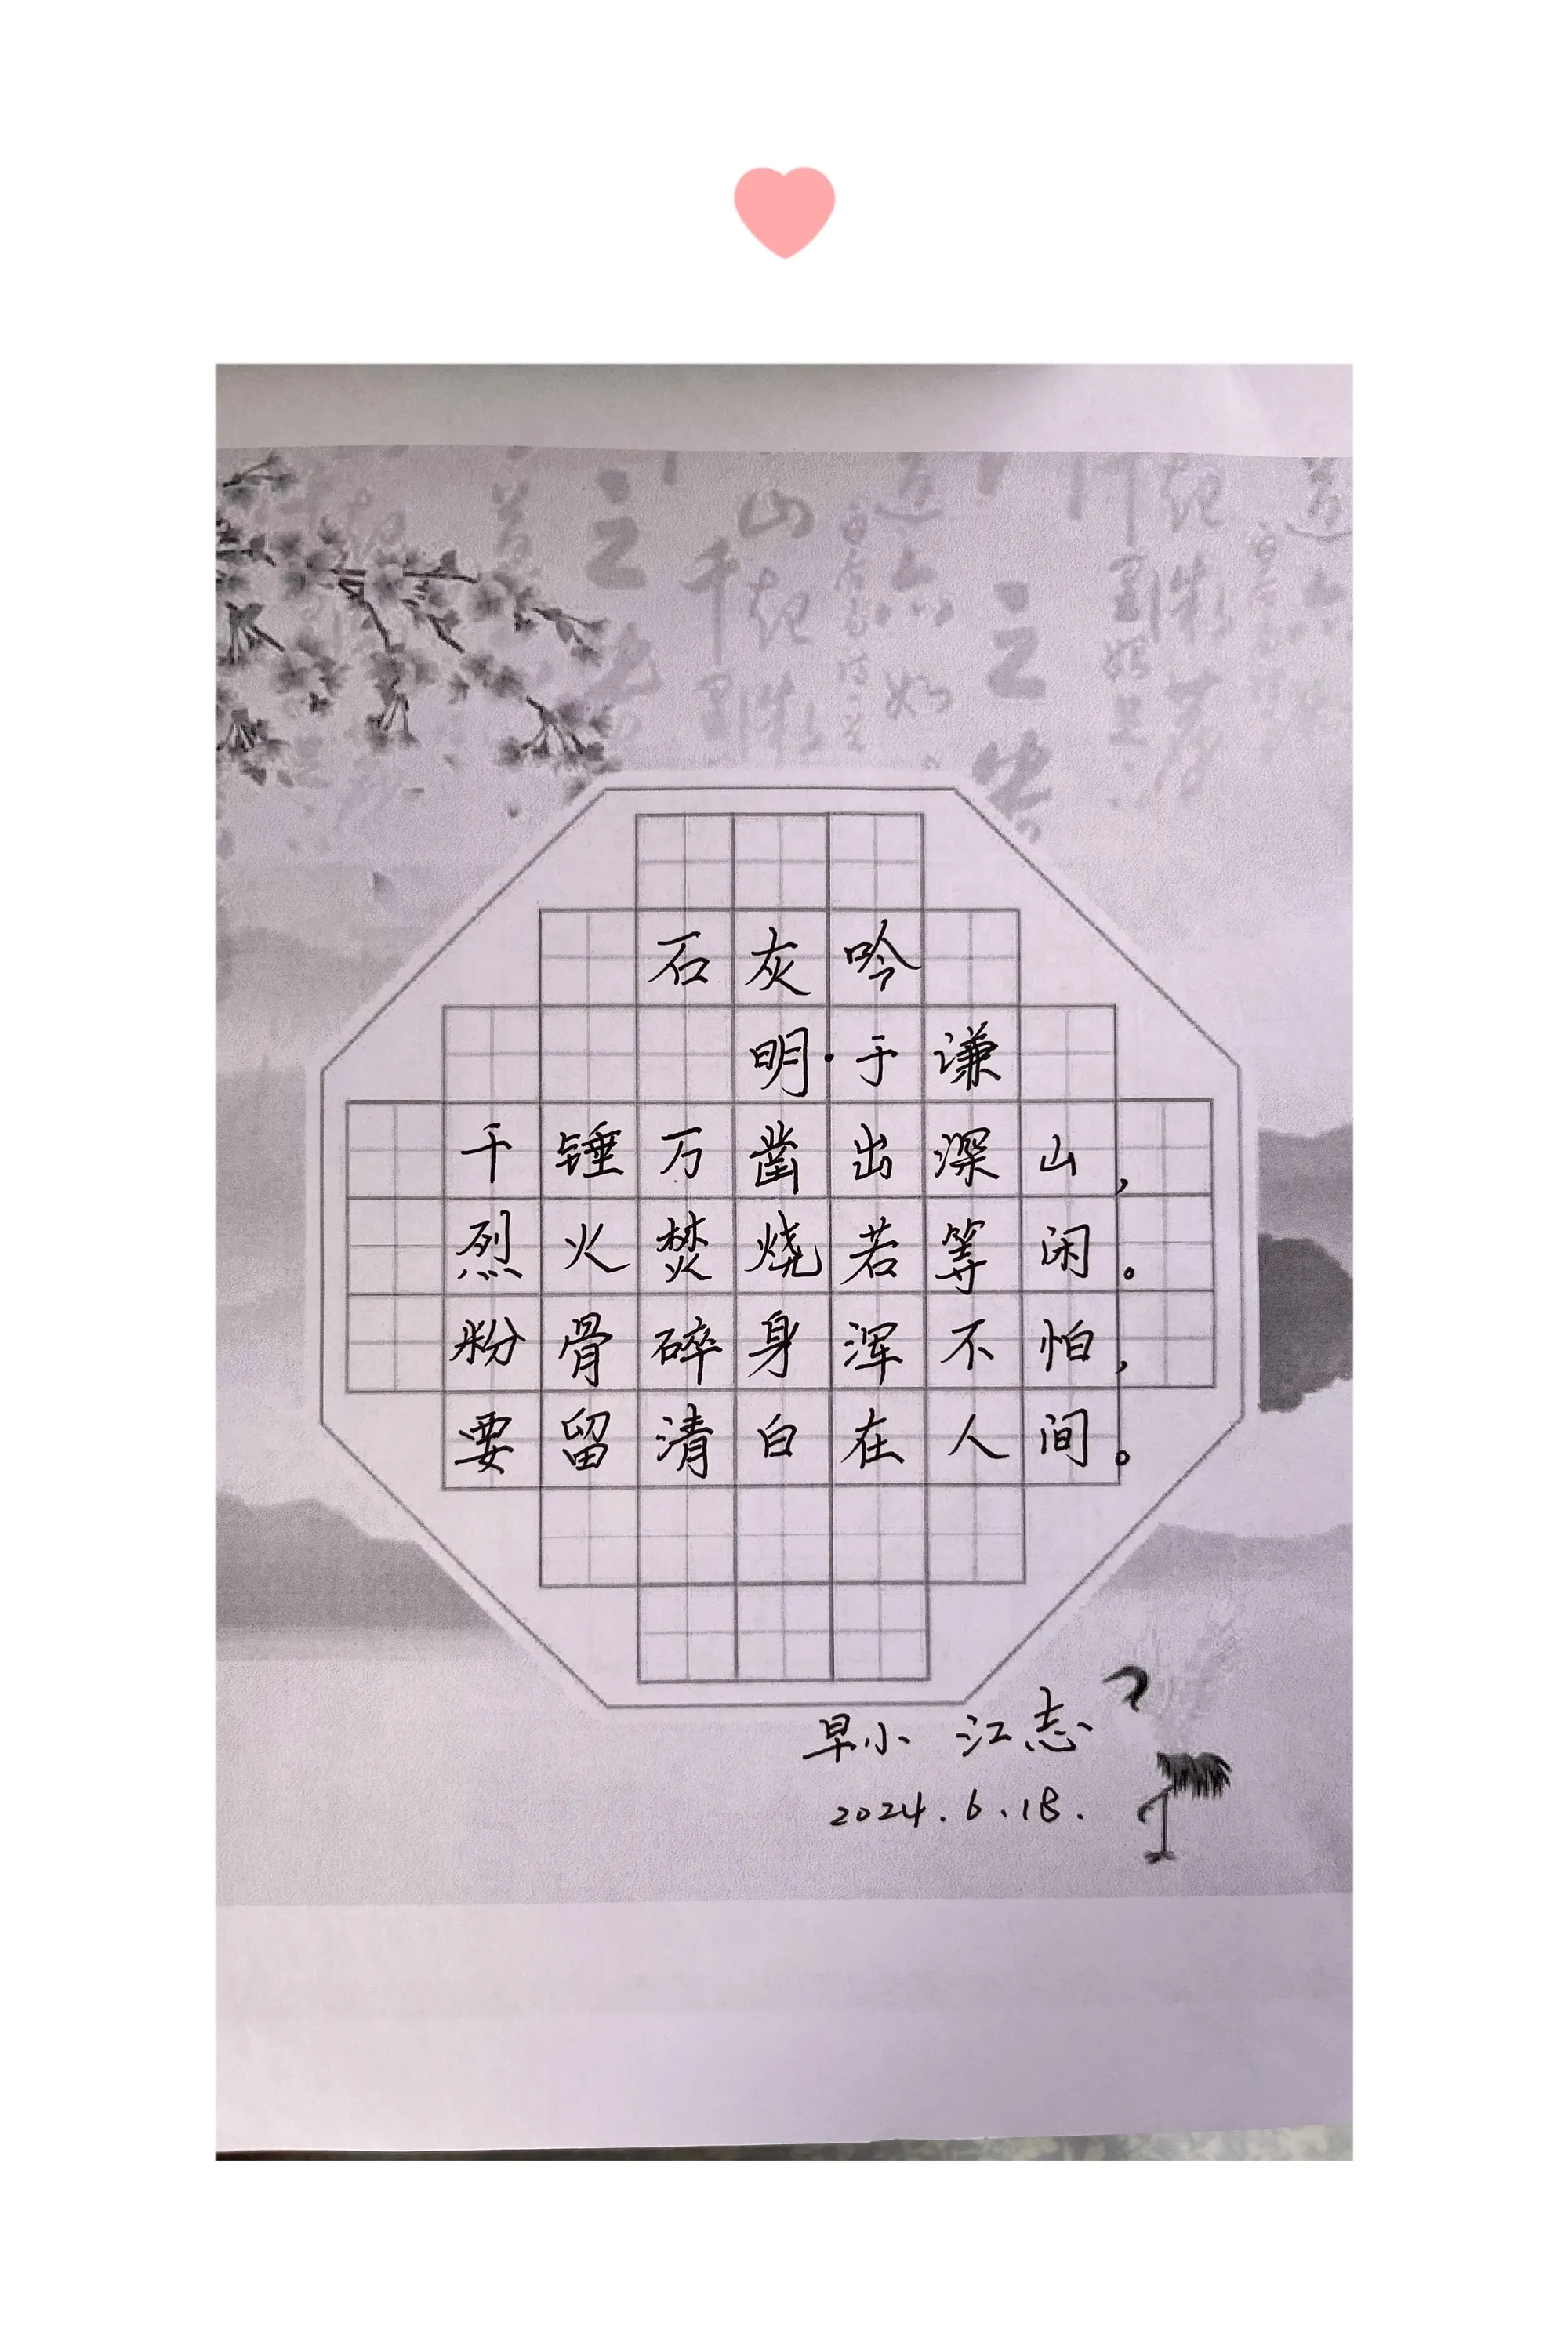 石灰吟
明·于谦
千锤万凿出深山，
烈火焚烧若等闲。
粉骨碎身浑不怕，
要留清白在人间。
早小 江志
2024.6.18.